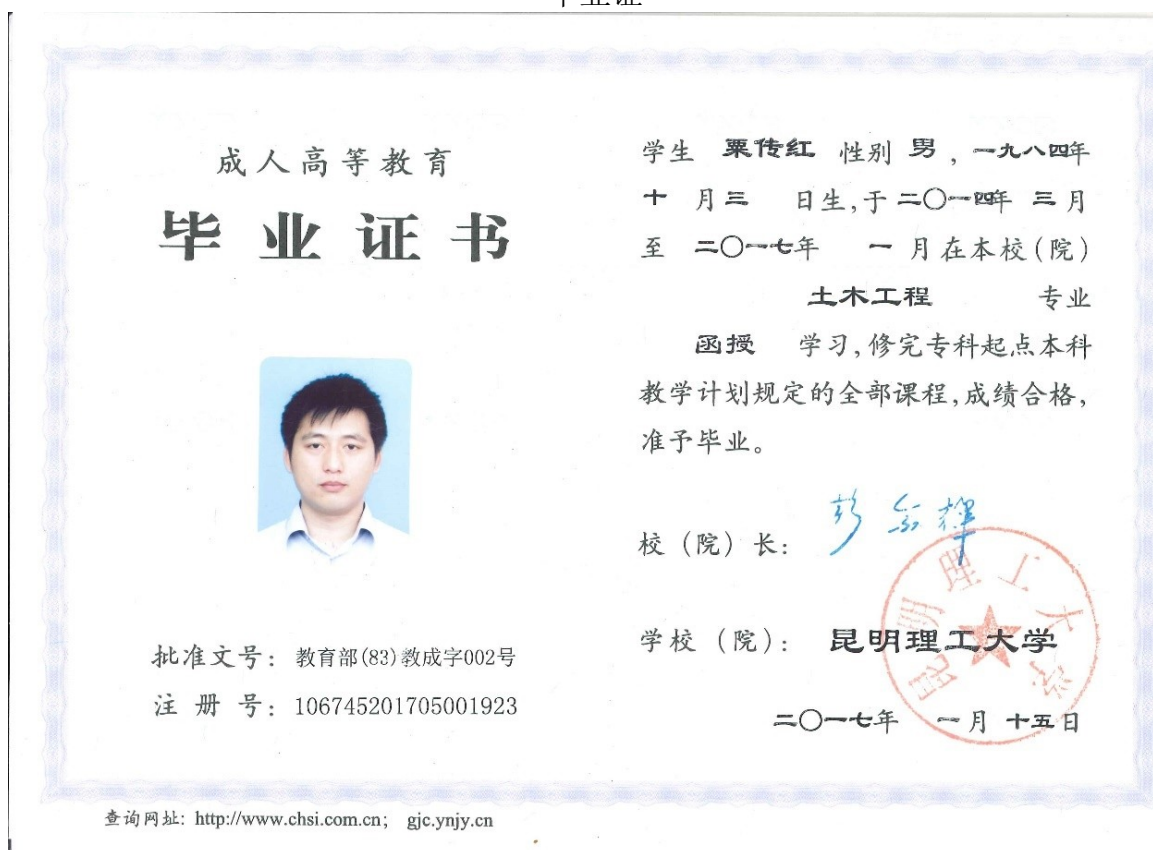 毕业证
成人高等教育
毕业证书
批准文号：教育部(83)教成字002号
注 册 号：106745201705001923
学生 粟传红 性别 男，一九八四年
十 月 三 日生,于 二〇一四年 三月
至 二〇一七年 一 月在本校(院)
土木工程 专业
函授 学习,修完专科起点本科
教学计划规定的全部课程,成绩合格,
准予毕业。
彭金辉
校（院）长：
昆明理工大学
学校（院）：昆明理工大学
二〇一七年 一月 十五日
查询网址: http://www.chsi.com.cn； gjc.ynjy.cn